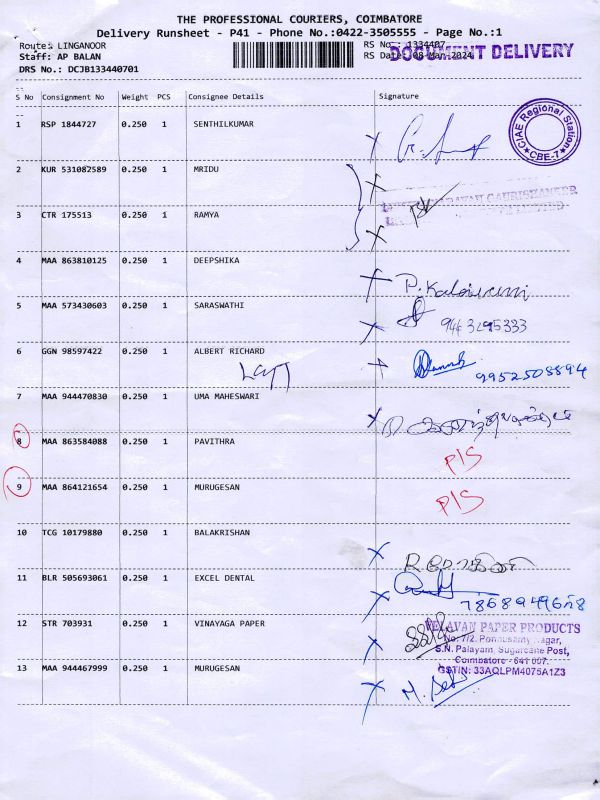 THE PROFESSIONAL COURIERS, COIMBATORE
Delivery Runsheet - P41 - Phone No.:0422-3505555 - Page No.:1
Route: LINGANOOR RS No.: 1334407
Staff: AP BALAN RS Date: 08-Mar-2024
DOCUMENT DELIVERY
DRS No.: DCJB133440701
S No Consignment No Weight PCS Consignee Details Signature
1 RSP 1844727 0.250 1 SENTHILKUMAR
CIAE Regional Station
CBE-7
2 KUR 531082589 0.250 1 MRIDU
3 CTR 175513 0.250 1 RAMYA
4 MAA 863810125 0.250 1 DEEPSHIKA
5 MAA 573430603 0.250 1 SARASWATHI
9443295333
6 GGN 98597422 0.250 1 ALBERT RICHARD
9952508894
7 MAA 944470830 0.250 1 UMA MAHESWARI
8 MAA 863584088 0.250 1 PAVITHRA
P/S
9 MAA 864121654 0.250 1 MURUGESAN
P/S
10 TCG 10179880 0.250 1 BALAKRISHAN
11 BLR 505693061 0.250 1 EXCEL DENTAL
12 STR 703931 0.250 1 VINAYAGA PAPER
VELAVAN PAPER PRODUCTS
No: 7/2, Ponnusamy Nagar,
S.N. Palayam, Sugarcane Post,
Coimbatore - 641 007.
GSTIN: 33AQLPM4075A1Z3
13 MAA 944467999 0.250 1 MURUGESAN